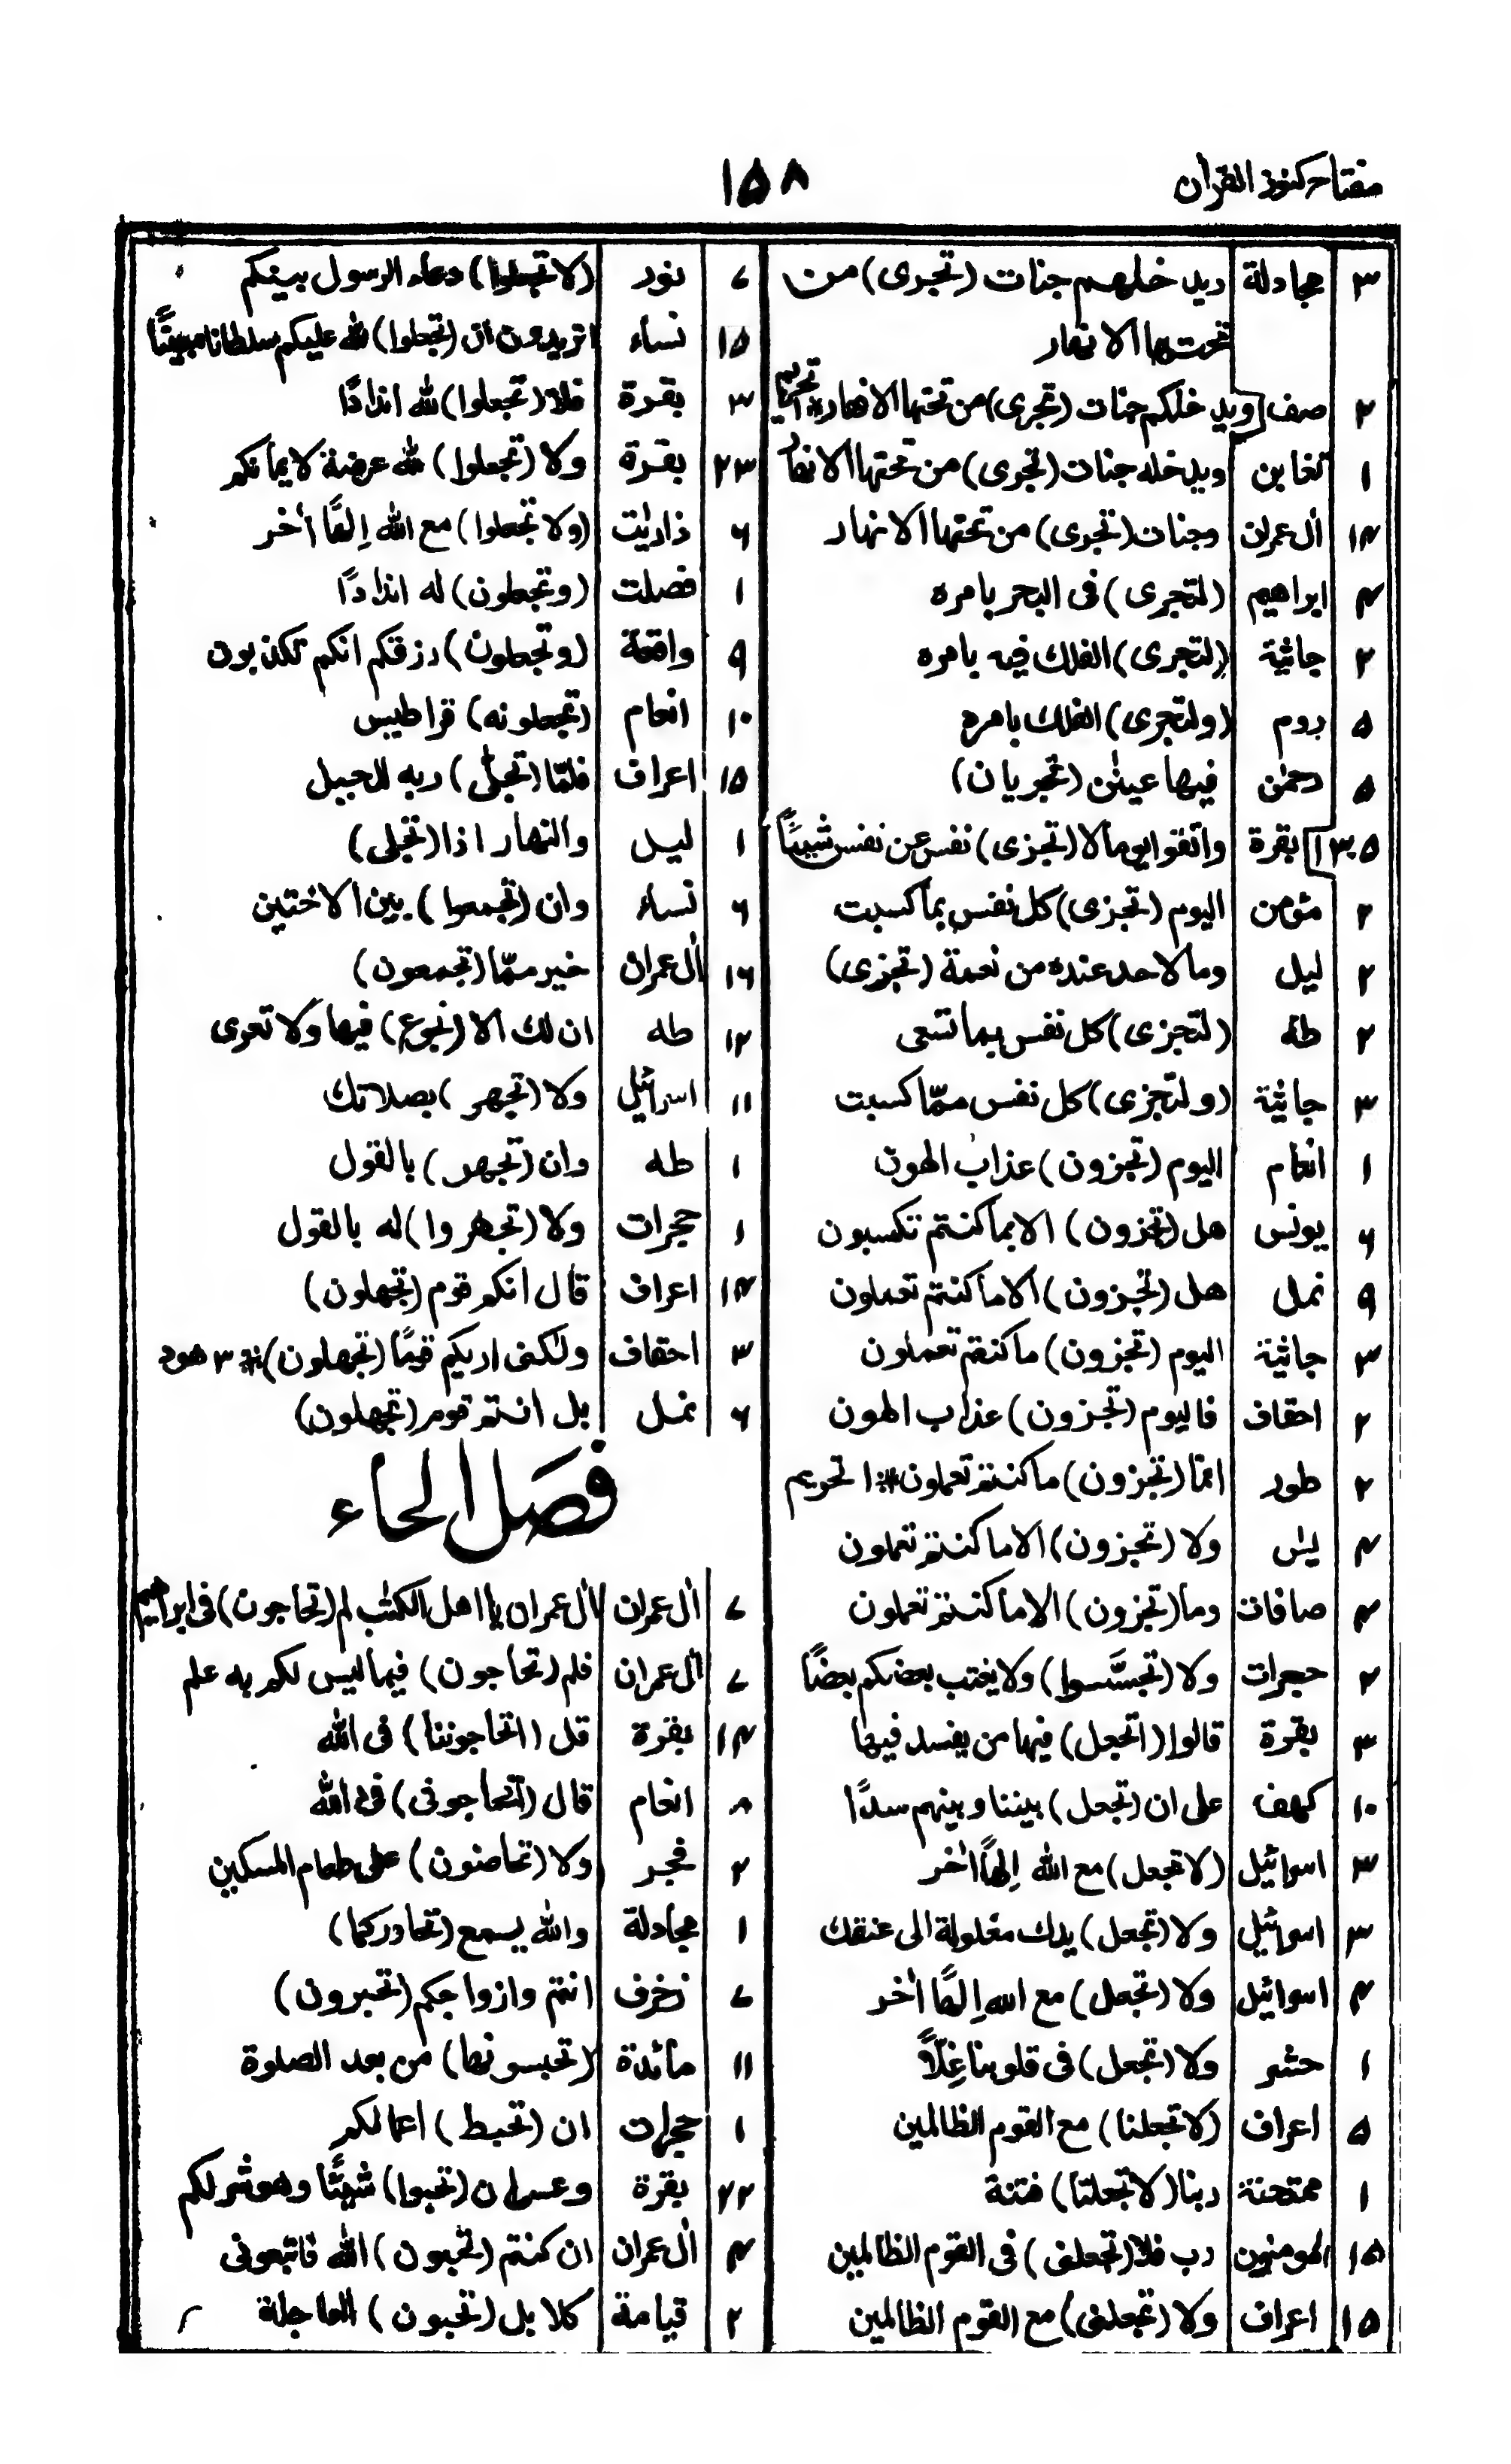 مفتاح کنوز القران
۱۵۸
۳ مجادلة ويدخلهم جنات (تجری) من
تحتها الانهار
۲ صف ويدخلكم جنات (تجری) من تحتها الانهار # ۲ تحریم
۱ تغابن ويدخله جنات (تجری) من تحتها الانهار
۱۴ اٰل عمران وجنات (تجری) من تحتها الانهار
۴ ابراهيم (لتجری) فی البحر بامره
۲ جاثية (لتجری) الفلك فيه بامره
۵ روم (ولتجری) الفلك بامره
۵ رحمٰن فيها عينٰن (تجريان)
۱۳،۵ بقرة واتقوا يوما لا (تجزی) نفس عن نفس شيئًا
۲ مؤمن اليوم (تجزی) كل نفس بما كسبت
۲ ليل وما لاحد عنده من نعمة (تجزی)
۲ طه (لتجزی) كل نفس بما تسعی
۳ جاثية (ولتجزی) كل نفس ممّا كسبت
۱ انعام اليوم (تجزون) عذاب الهون
۶ يونس هل (تجزون) الا بما كنتم تكسبون
۹ نمل هل (تجزون) الا ما كنتم تعملون
۳ جاثية اليوم (تجزون) ما كنتم تعملون
۲ احقاف فاليوم (تجزون) عذاب الهون
۲ طور انما (تجزون) ما كنتم تعملون # ۱ تحريم
۴ يٰس ولا (تجزون) الا ما كنتم تعملون
۴ صافات وما (تجزون) الا ما كنتم تعملون
۲ حجرات ولا (تجسَّسوا) ولا يغتب بعضكم بعضًا
۳ بقرة قالوا (اتجعل) فيها من يفسد فيها
۱۰ كهف علی ان (تجعل) بيننا وبينهم سدًا
۳ اسرائيل (لا تجعل) مع الله اِلهًا اٰخر
۳ اسرائيل ولا (تجعل) يدك مغلولة الی عنقك
۴ اسرائيل ولا (تجعل) مع الله اِلهًا اٰخر
۱ حشر ولا (تجعل) فی قلوبنا غِلّاً
۵ اعراف (لا تجعلنا) مع القوم الظالمين
۱ ممتحنة ربنا (لا تجعلنا) فتنة
۱۵ المومنون رب فلا (تجعلنی) فی القوم الظالمين
۱۵ اعراف ولا (تجعلنی) مع القوم الظالمين
۷ نور (لا تجعلوا) دعاء الرسول بينكم
۱۵ نساء اتريدون ان (تجعلوا) لله عليكم سلطانا مبينًا
۳ بقرة فلا (تجعلوا) لله اندادًا
۲۳ بقرة ولا (تجعلوا) لله عرضة لايمانكم
۶ ذاريٰت (ولا تجعلوا) مع الله اِلهًا اٰخر
۱ فصلت (وتجعلون) له اندادًا
۹ واقعة (وتجعلون) رزقكم انكم تكذبون
۱۰ انعام (تجعلونه) قراطيس
۱۵ اعراف فلمّا (تجلّٰی) ربه للجبل
۱ ليل والنهار اذا (تجلی)
۶ نساء وان (تجمعوا) بين الاختين
۱۶ اٰل عمران خير ممّا (تجمعون)
۱۲ طه ان لك الا (تجوع) فيها ولا تعری
۱۱ اسرائيل ولا (تجهر) بصلاتك
۱ طه وان (تجهر) بالقول
۱ حجرات ولا (تجهروا) له بالقول
۱۴ اعراف قال انكم قوم (تجهلون)
۳ احقاف ولٰكنی اريكم قومًا (تجهلون) # ۳ هود
۶ نمل بل انتم قوم (تجهلون)
فصَل الحاء
۷ اٰل عمران اٰل عمران يا اهل الكتٰب لم (تحاجون) فی ابراهيم
۷ اٰل عمران فلم (تحاجون) فيما ليس لكم به علم
۱۴ بقرة قل (اتحاجوننا) فی الله
۸ انعام قال (أتحاجونی) فی الله
۲ فجر ولا (تحاضون) علی طعام المسكين
۱ مجادلة والله يسمع (تحاوركما)
۷ زخرف انتم وازواجكم (تحبرون)
۱۱ مائدة (تحبسونها) من بعد الصلوة
۱ حجرات ان (تحبط) اعمالكم
۲۲ بقرة وعسی ان (تحبوا) شيئًا وهو شر لكم
۴ اٰل عمران ان كنتم (تحبون) الله فاتبعونی
۲ قيامة كلا بل (تحبون) العاجلة